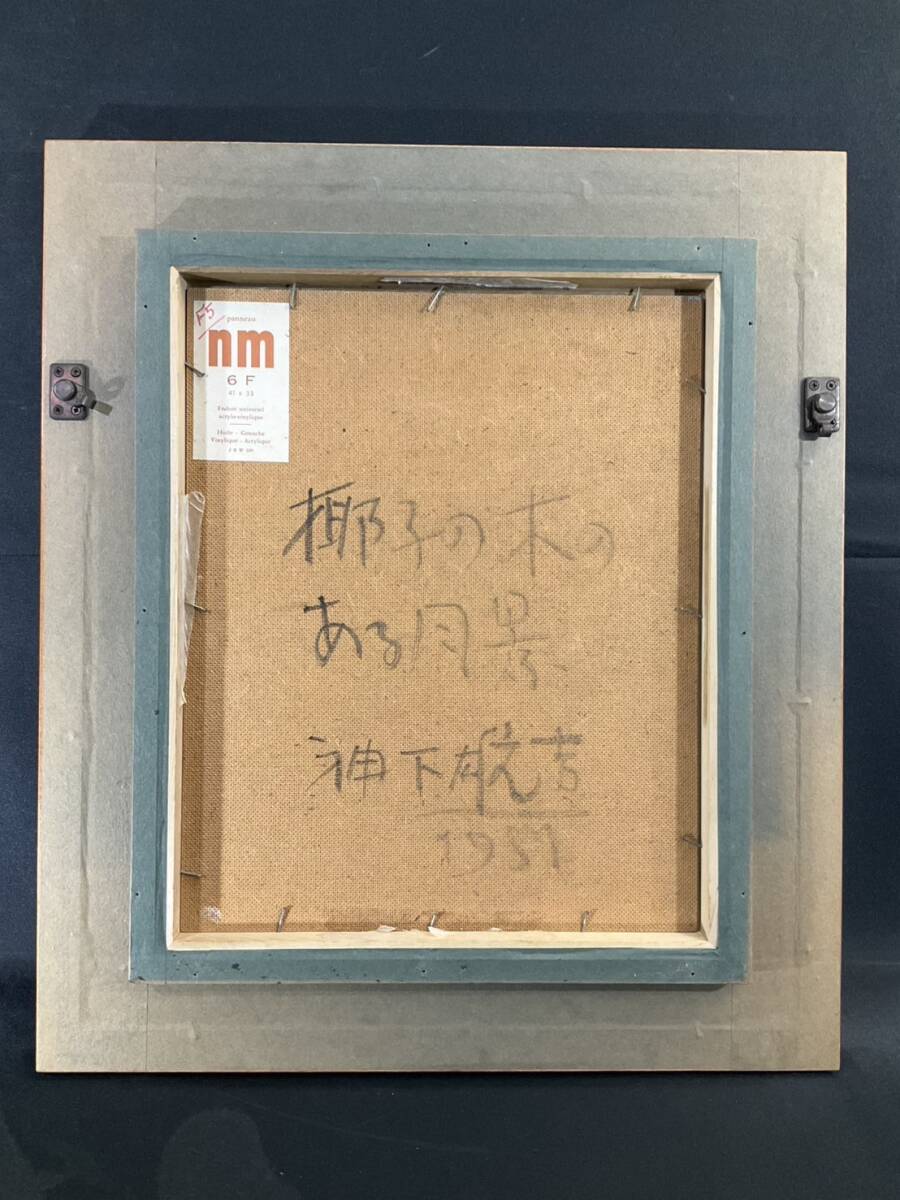 F5
panneau
nm
6 F
41 x 33
Enduit universel
acrylo-vinylique
Huile - Gouache
Vinylique - Acrylique
椰子の木の
ある風景
神下雄吉
1951